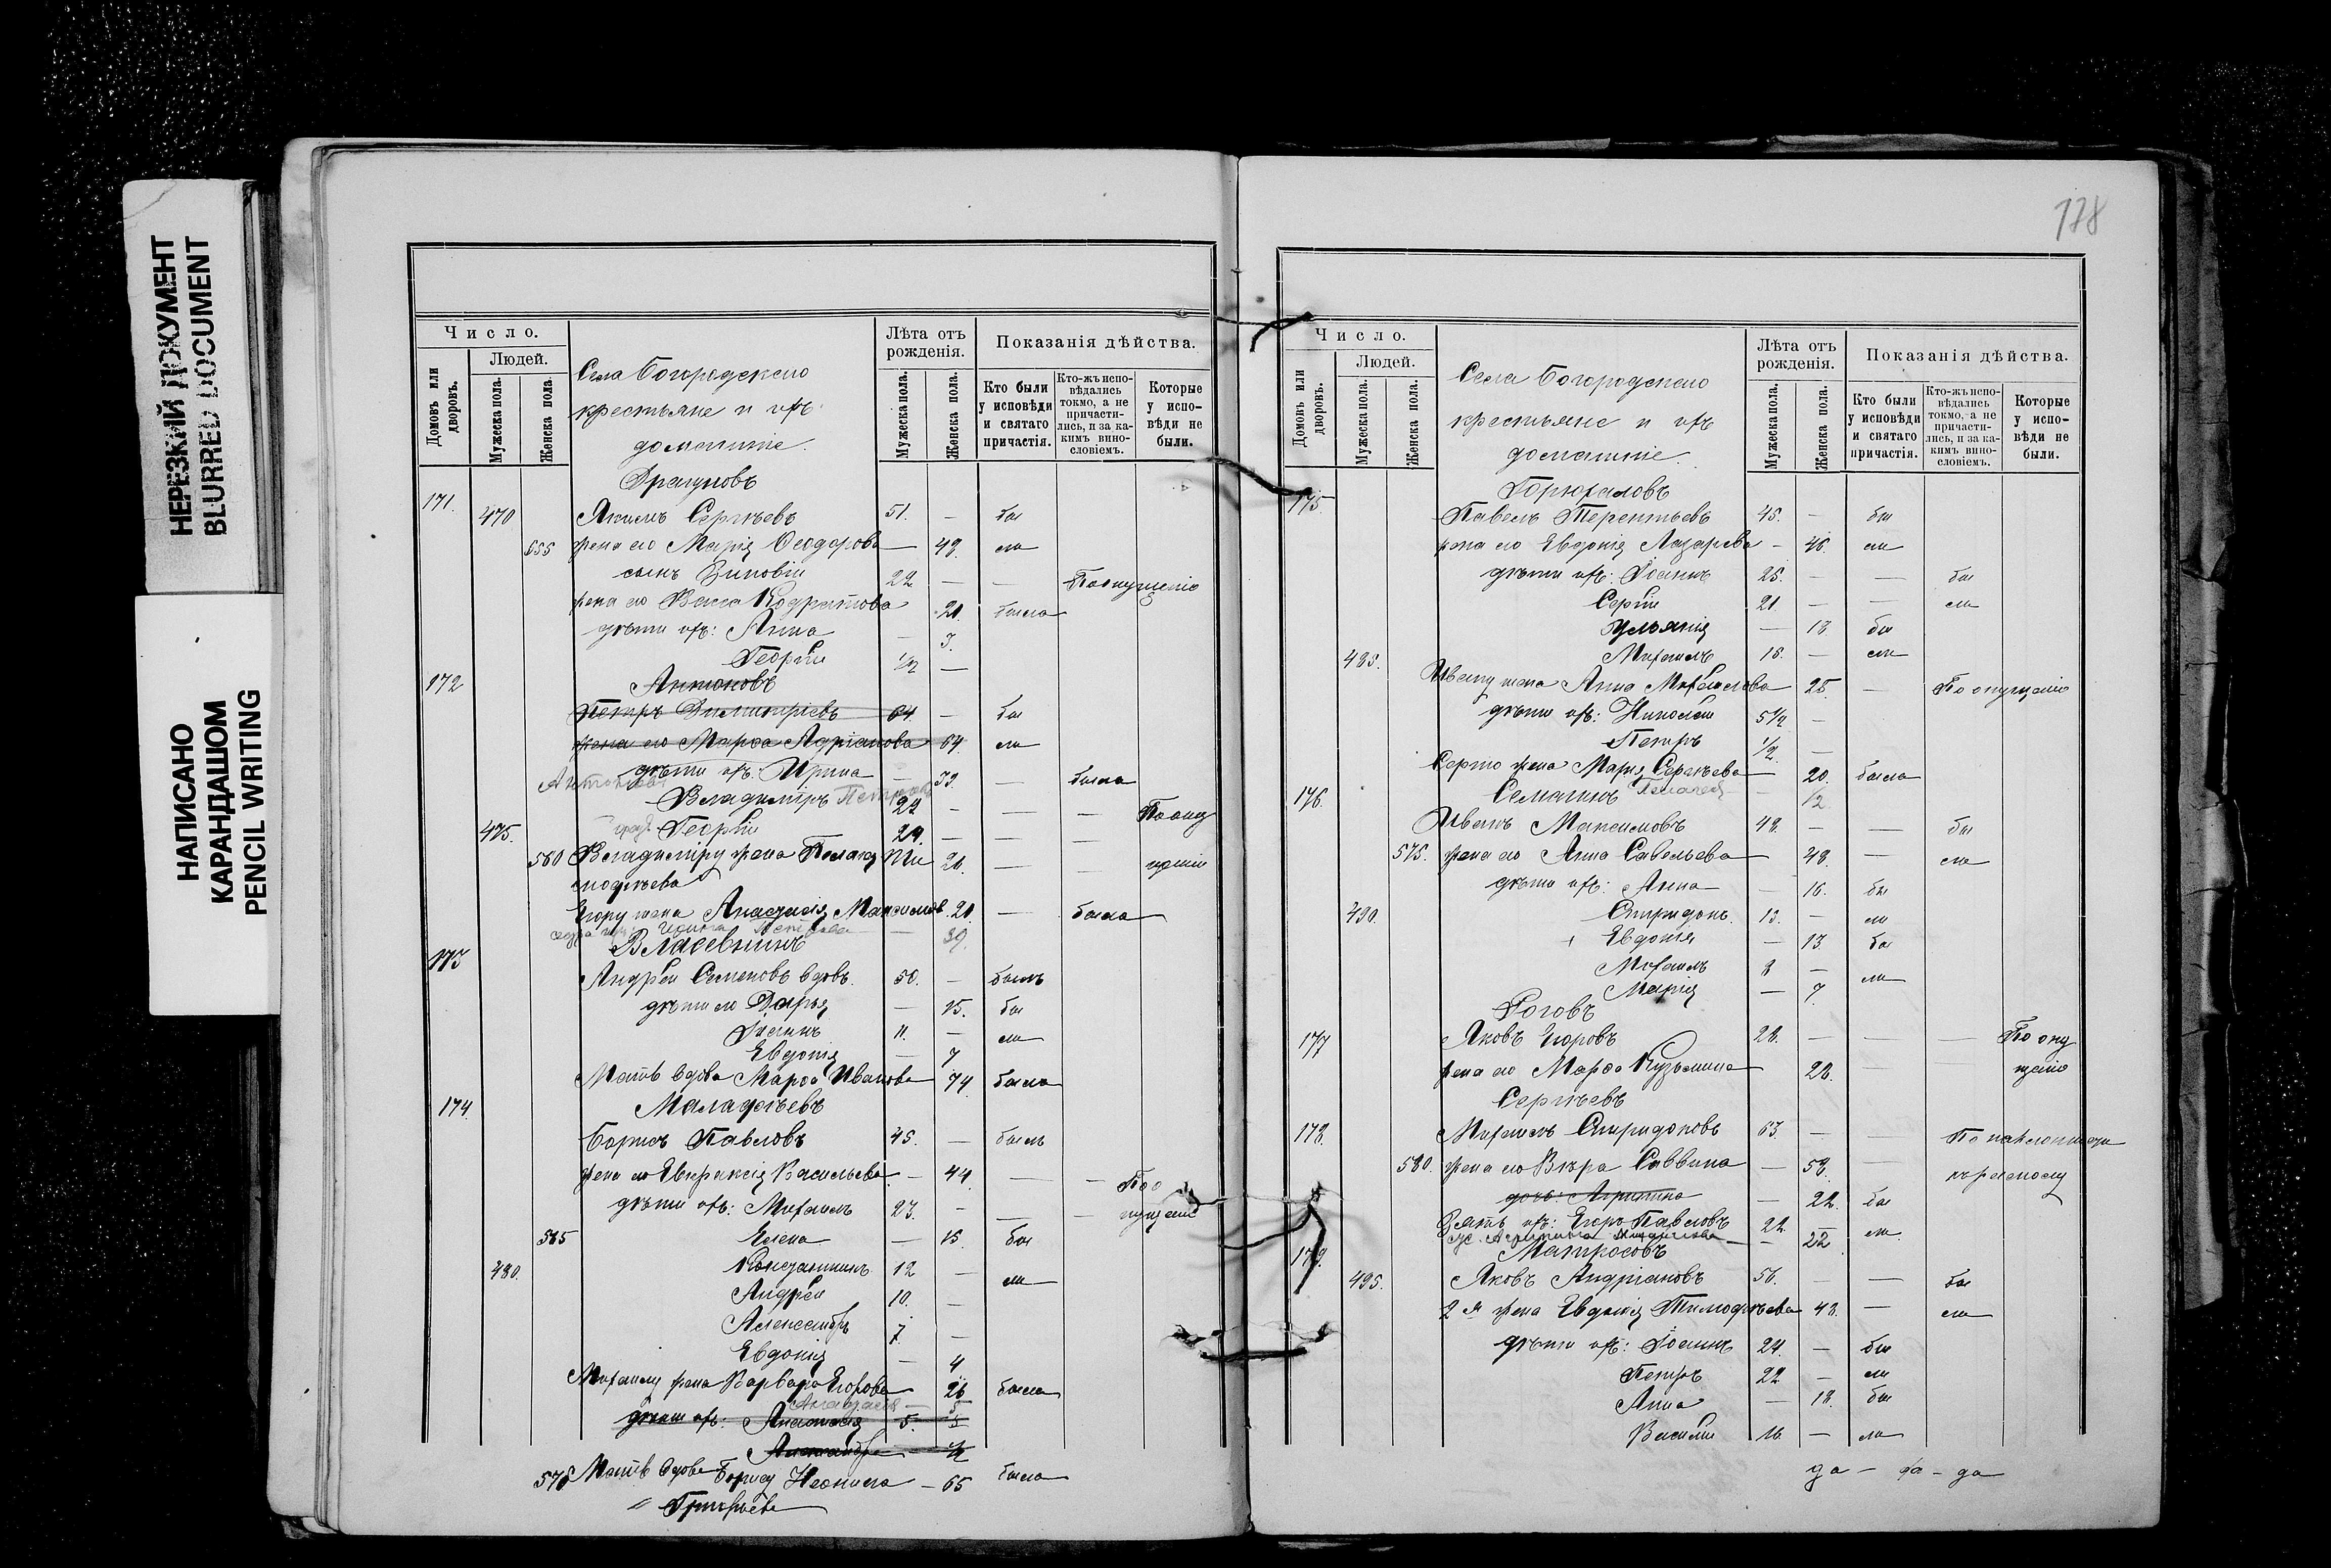 НЕРЕЗКИЙ ДОКУМЕНТ
BLURRED DOCUMENT
НАПИСАНО
КАРАНДАШОМ
PENCIL WRITING
Число.
Людей.
Домовъ или дворовъ.
Мужеска пола.
Женска пола.
Села Богородскаго
крестьяне и ихъ
домашніе.
Лѣта отъ рожденія.
Мужеска пола.
Женска пола.
Показанія дѣйства.
Кто были у исповѣди и святаго причастія.
Кто-жъ исповѣдались токмо, а не причастились, и за какимъ винословіемъ.
Которые у исповѣди не были.
Драгуновъ
171. 470 Якимъ Сергѣевъ 51. — бы
555 жена его Марія Ѳеодорова — 49. ли
сынъ Зиновій 22 — — По опущенію
жена его Васса Кодратова 21. была
дѣти ихъ: Анна — 3.
Георгій 1/2 —
172 Антоновъ
Петръ Димитріевъ 64. — бы
жена его Марѳа Адріанова 64 ли
дѣти ихъ: Ирина — 39. — была
Антоновъ
Владиміръ Петровъ 24 — — — По опу
475. Георгій 24. — — —
560 Владиміру жена Пелагія Ти 26. — — щенію
моѳѣева
Егору жена Анастасія Максимов. 21. — была
Ирина Петрова — 39.
Власевнинъ
173 Андрей Семеновъ вдовъ. 50. — былъ
дѣти его Дарья — 15. бы
Іоаннъ 11. — ли
Евдокія — 7
Мать вдова Марѳа Иванова 74. была
174. Маладѣевъ
Борисъ Павловъ 45. — былъ
жена его Евпраксія Васильева — 44. — — По о
дѣти ихъ: Михаилъ 23. — — — пущенію
565 Елена — 15. бы
480. Константинъ 12 — ли
Андрей 10. —
Александръ 7 —
Евдокія — 4
Михаилу жена Варвара Егорова 26 была
Анастасія —
дѣти ихъ: Анастасія 5. 5
Александра 1/2
570 Мать вдова Борису Неонила — 65 была
Григорьева
178
Число.
Людей.
Домовъ или дворовъ.
Мужеска пола.
Женска пола.
Села Богородскаго
крестьяне и ихъ
домашніе.
Лѣта отъ рожденія.
Мужеска пола.
Женска пола.
Показанія дѣйства.
Кто были у исповѣди и святаго причастія.
Кто-жъ исповѣдались токмо, а не причастились, и за какимъ винословіемъ.
Которые у исповѣди не были.
175. Горюхаловъ
Павелъ Терентьевъ 45. — бы
жена его Евдокія Лазарева — 46. ли
дѣти ихъ: Іоаннъ 25. — — бы
Сергій 21. — — ли
Ульянія — 18. бы
485. Михаилъ 16. — ли
Ивану жена Анна Михайлова 25. — По опущенію
дѣти ихъ: Николай 5 1/2 —
Петръ 1/2 —
Сергію жена Марія Сергѣева — 20. была
176. Семагинъ Пелагея — 1/2
Иванъ Максимовъ 48. — — бы
575. жена его Анна Савельева 48. — ли
дѣти ихъ: Анна — 16. бы
490. Спиридонъ. 13. — ли
Евдокія — 13 бы
Михаилъ 8 — ли
Марія — 7.
Роговъ
177 Яковъ Егоровъ 28. — — — По опу
жена его Марѳа Кузьмина 28. — щенію
Сергѣевъ
178. Михаилъ Спиридоновъ 63. — — По наклонности
580. жена его Вѣра Саввина — 58. — къ расколу
дочь: Агрипина — 22. бы
Зять ихъ: Егоръ Павловъ 22. — ли.
ж. Агрипина Михайлова — 22
179. Матросовъ
495. Яковъ Андріановъ 56. — — бы
2 я жена Евдокія Тимоѳѣева 48. — ли
дѣти ихъ: Іоаннъ 24. — бы
Петръ 22 — ли
Анна — 18. бы
Василій 16. — ли
да — да — да